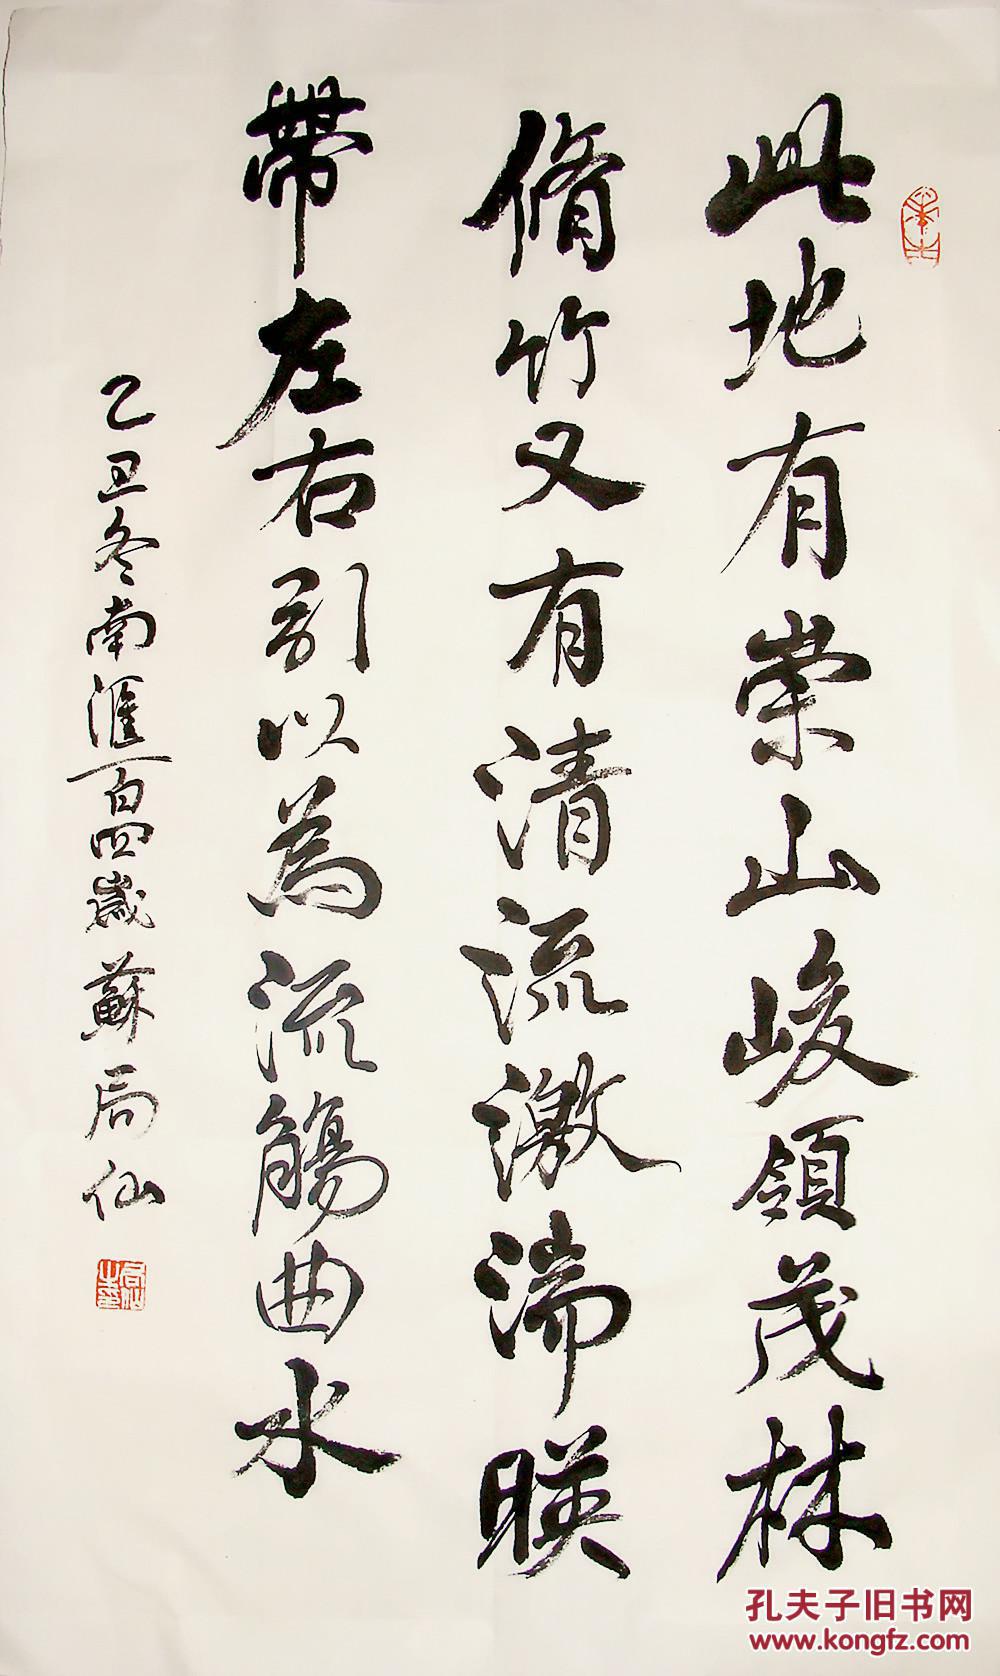 此地有崇山峻領茂林
脩竹又有清流激湍暎
帶左右引以為流觴曲水
乙丑冬南滙一百四歲蘇局仙
孔夫子旧书网
www.kongfz.com